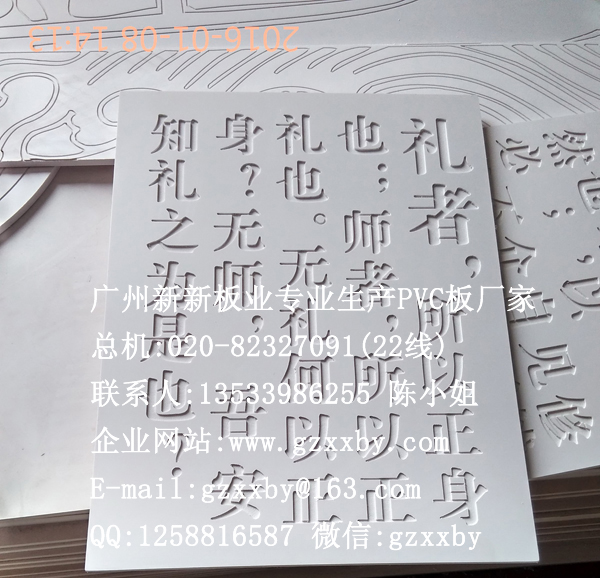 2016-01-08 14:13
礼者，所以正身
也；师者，所以正
礼也。无礼何以正
身？无师，吾安
知礼之为是也！
广州新新板业专业生产PVC板厂家
总机:020-82327091(22线)
联系人:13533986255 陈小姐
企业网站:www.gzxxby.com
E-mail:gzxxby@163.com
QQ:1258816587 微信:gzxxby